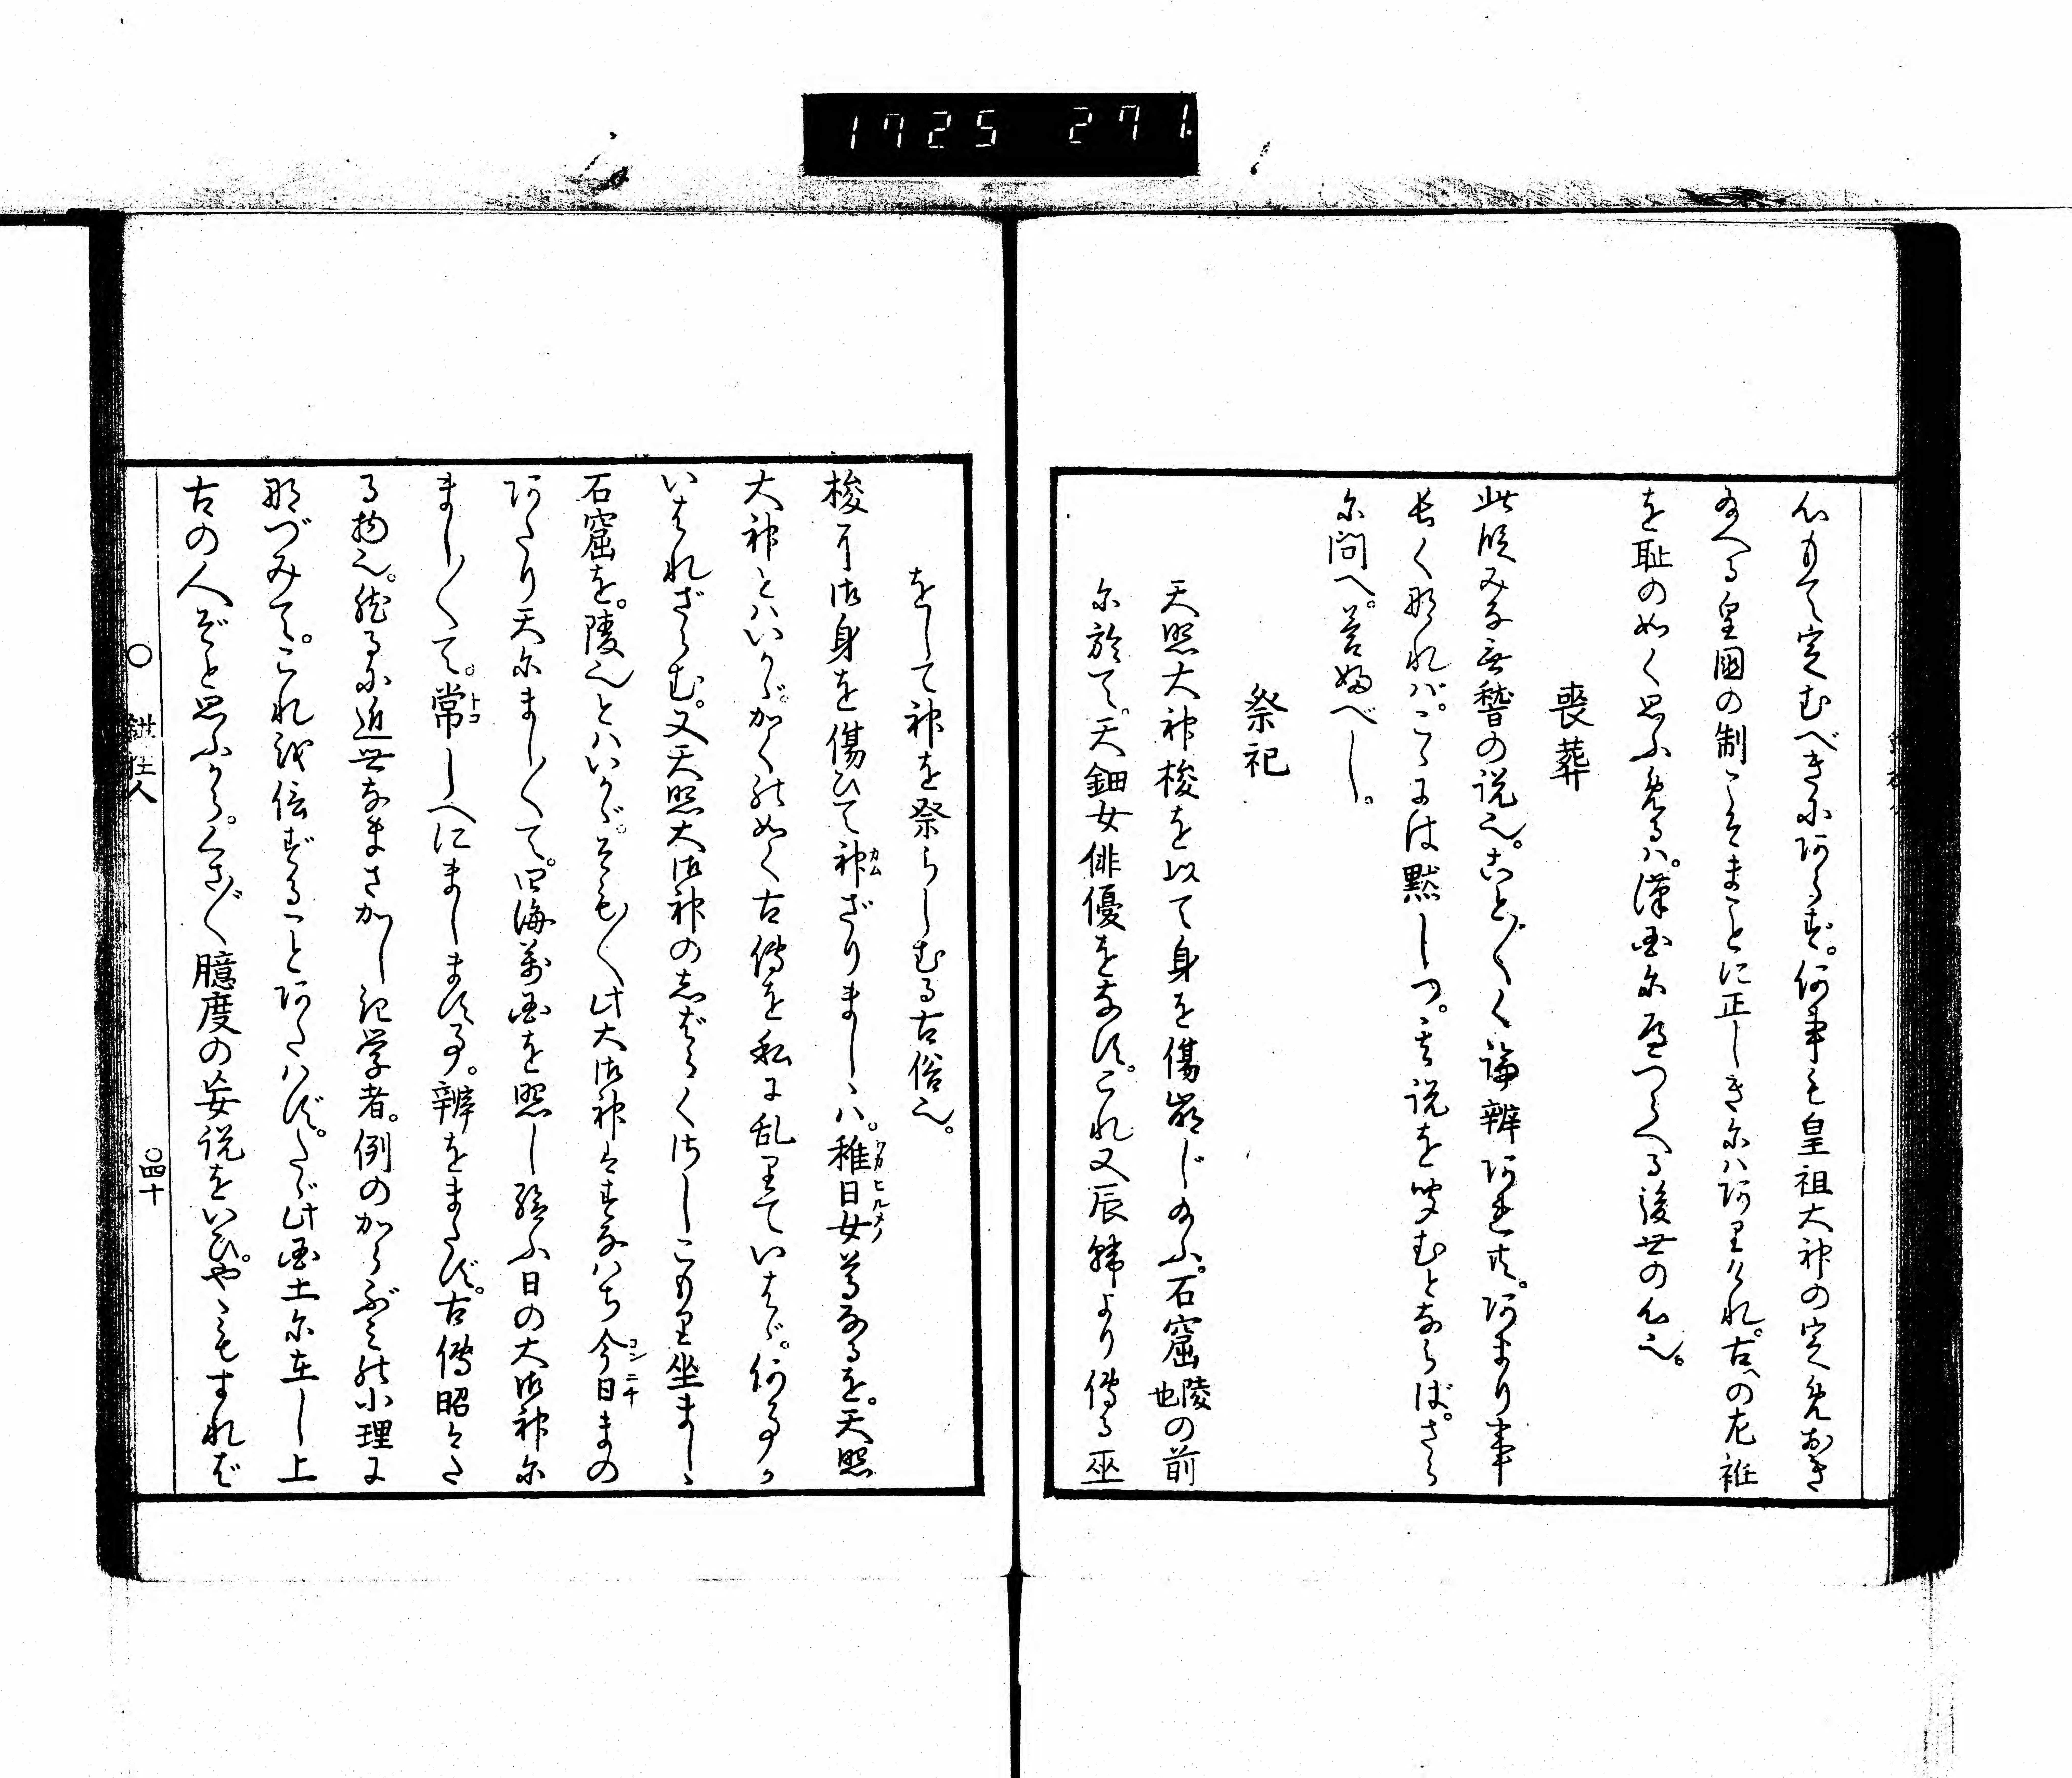 1725 271.
心もて定むべきにあらず。何事も皇祖大神の定め給おき
給へる皇國の制こそまことに正しきにハありけれ。古への左衽
を恥のめく思ふめるハ。漢国にへつらへる後世の心也。
喪葬
此段みな無稽の説也。ことごとく論辨あれ共。あまり事
長く那れバ。こゝには黙しつ。其説を聞むとならば。さら
に問へ。答ふべし。
祭祀
天照大神梭を以て身を傷崩じ給ふ。石窟陵也の前
に於て。天鈿女俳優をなす。これ又辰韓より傳る巫
をして神を祭らしむる古俗也。
梭に御身を傷ひて神ざりましゝハ。稚日女尊なるを。天照
大神とハいかゞ。かくの如く古傳を私に乱りていはゞ。何事か
いはれざらむ。又天照大御神の志ばらくさしこもり坐ましゝ
石窟を。陵也とハいかゞ。そも〳〵此大御神はすなハち今日まの
あたり天にまし〳〵て。四海萬国を照し給ふ日の大御神に
まし〳〵て。常しへにまします事。辨をまたず。古傳昭々た
る物也。然るに近世なまさかしき学者。例のからぶみの小理に
那づみて。これを信ずることあたハず。たゞ此国土に在し上
古の人ぞと思ふから。くさ〴〵臆度の妄説をいひ。やゝもすれば
鉗狂人
○四十